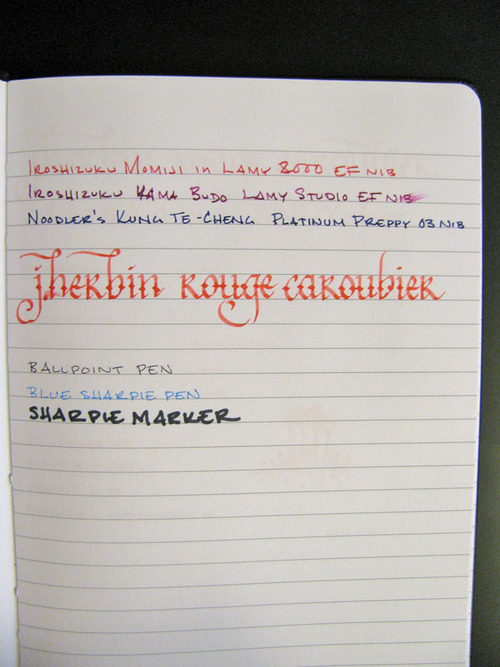 Iroshizuku Momiji in Lamy 2000 EF nib
Iroshizuku Yama Budo Lamy Studio EF nib
Noodler's Kung Te-Cheng Platinum Preppy 03 nib
j.herbin rouge caroubier
Ballpoint pen
Blue Sharpie pen
Sharpie marker